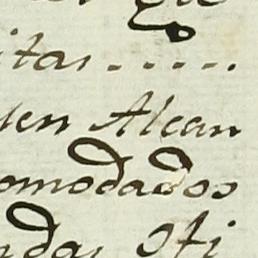 itas.....
den Alcan
omodados
ndas Ofi